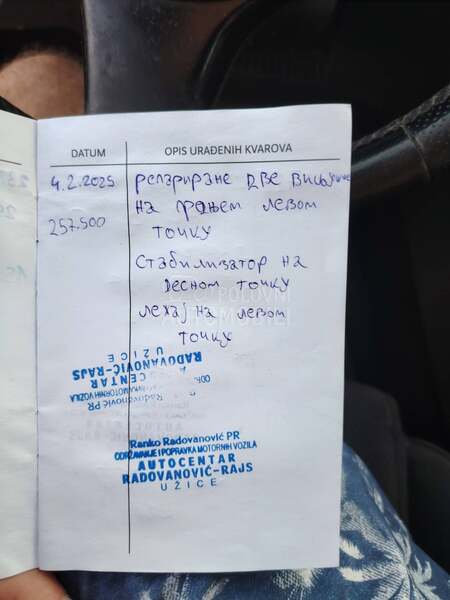 DATUM
OPIS URAĐENIH KVAROVA
4.2.2025 репариране две виљушке
257.500 на
левом
точку
Стабилизатор на
десном точку
лежај на левом
точку
POLOVNI
AUTOMOBILI
UŽICE
RADOVANOVIĆ-RAJS
CENTAR
MOTORNIH VOZILA
Radovanović PR
Ranko Radovanović PR
ODRŽAVANJE I POPRAVKA MOTORNIH VOZILA
AUTOCENTAR
RADOVANOVIĆ-RAJS
UŽICE